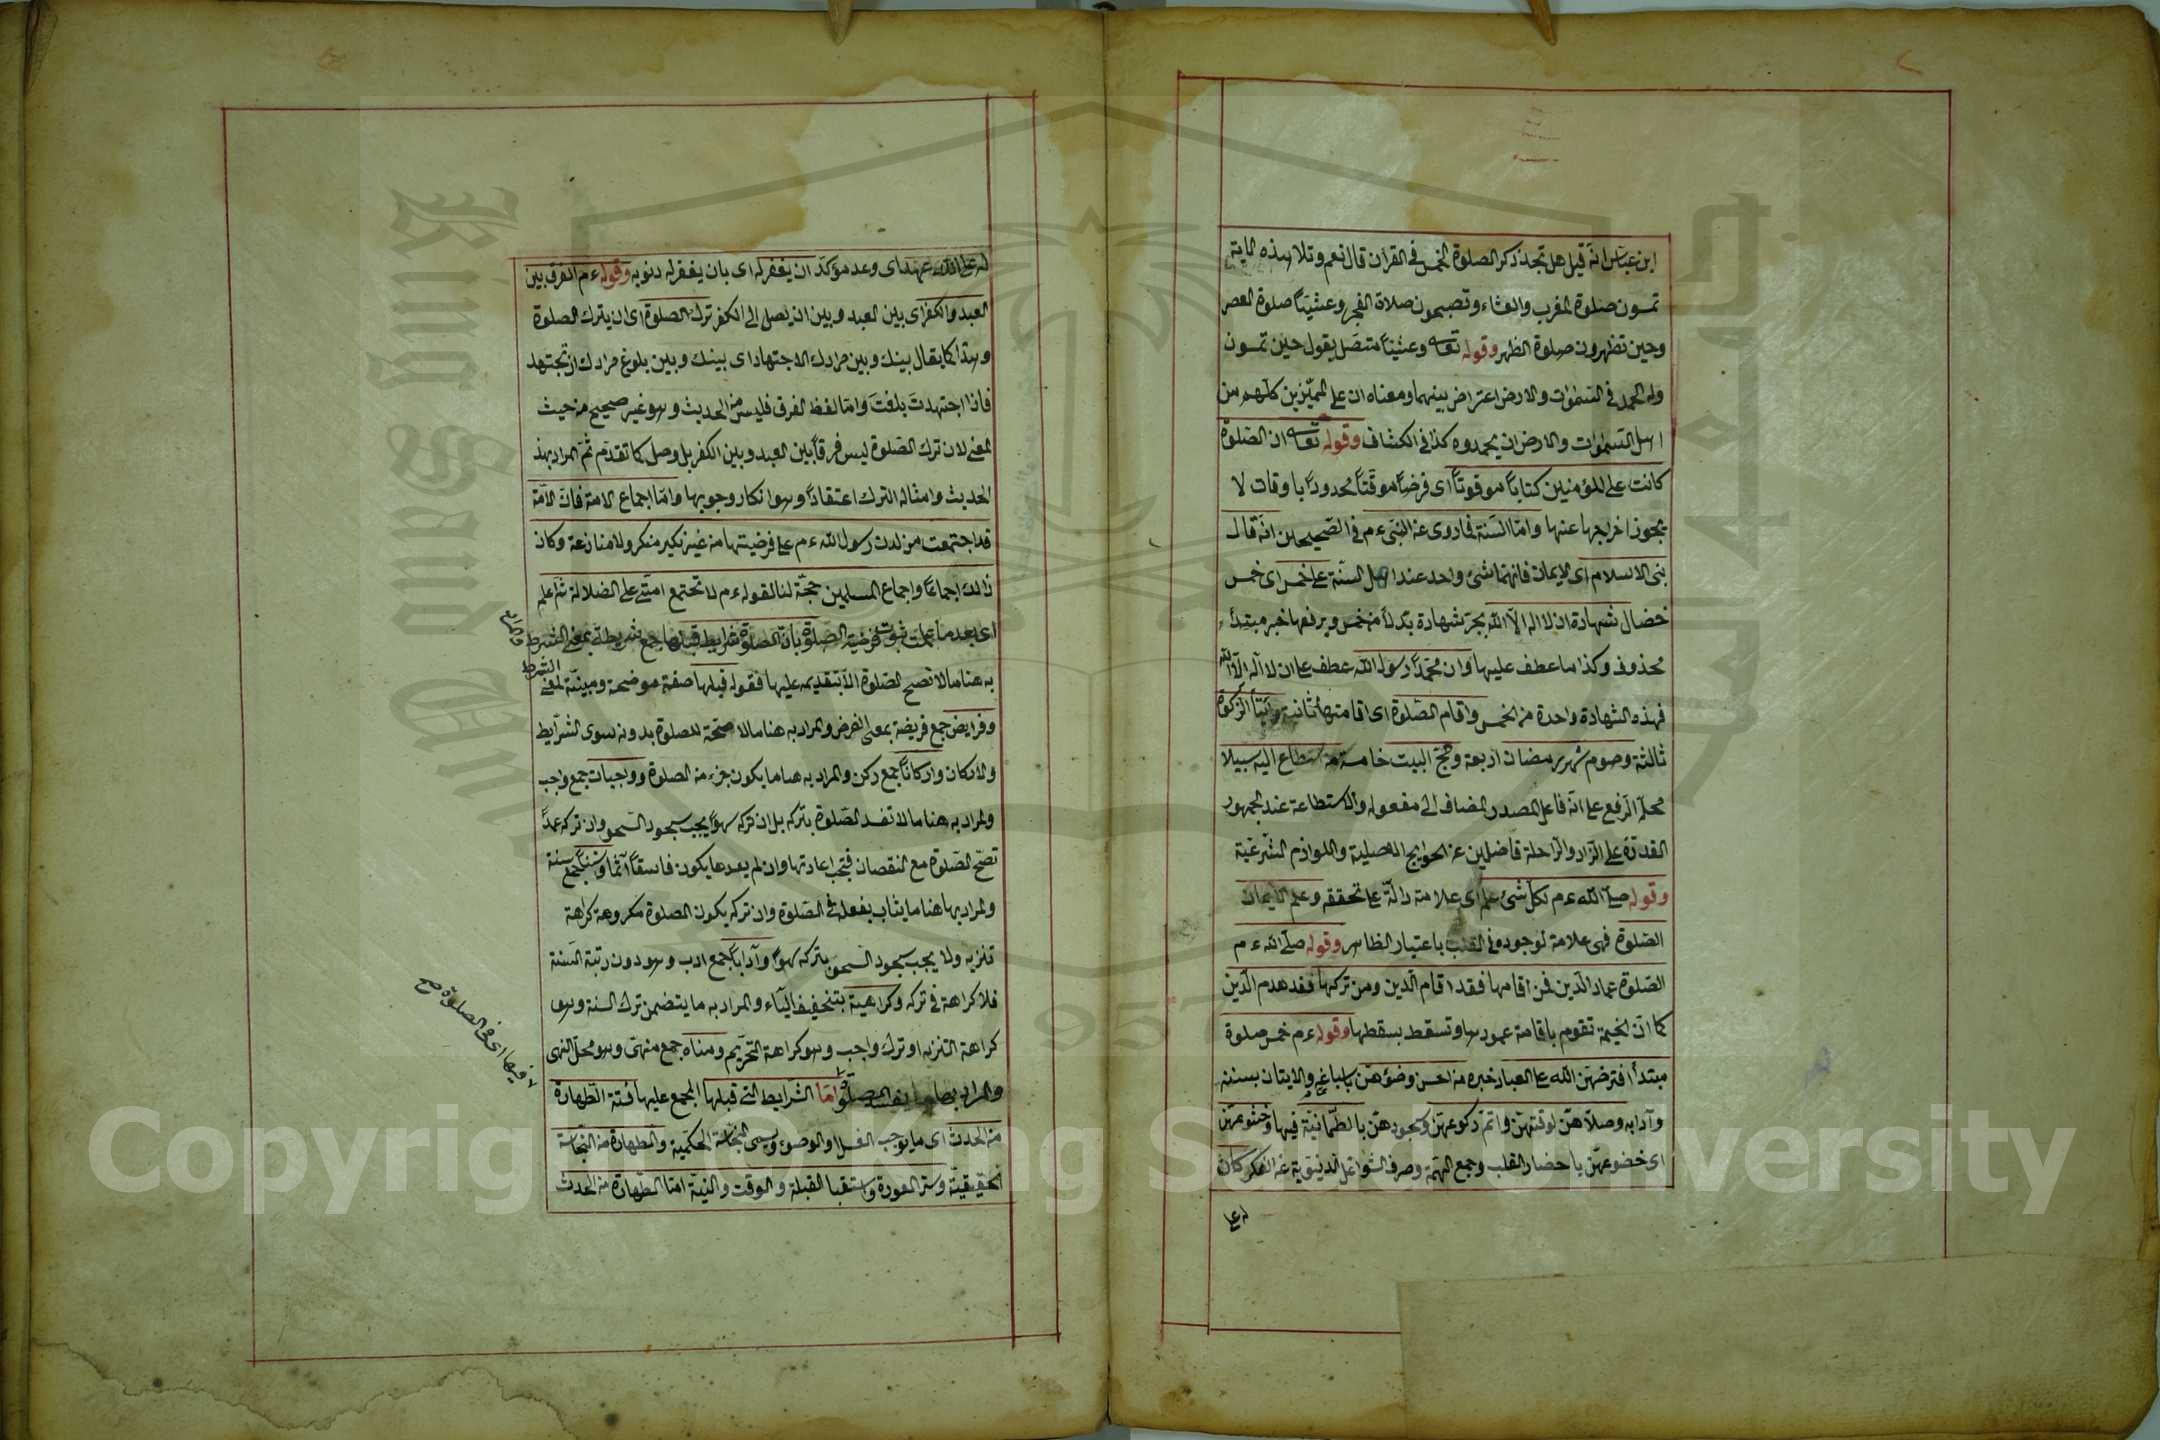 ابن عباس انه قيل هل تجد ذكر الصلوة الخمس في القرآن قال نعم وتلا هذه الاية
تمسون صلوة المغرب والعشاء وتصبحون صلاة الفجر وعشيّاً صلوة العصر
وحين تظهرون صلوة الظهر وقوله تعـ وعشيّاً متصل بقوله حين تمسون
وله الحمد في السموات والارض اعتراض بينهما ومعناه ان على المميّزين كلهم من
اهل السموات والارض ان يحمدوه كذا في الكشاف وقوله تعـ ان الصلوة
كانت على المؤمنين كتاباً موقوتاً اى فرضاً موقتاً محدوداً باوقات لا
يجوز اخراجها عنها وامّا السّنة فما روى عن النبى ءم في الصحيحين انه قال
بنى الاسلام اى الايمان فانهما شئ واحد عند اهل السنّة على خمس اى خمس
خصال شهادة ان لا اله الا الله بجرّ شهادة بدلاً من خمس وبرفعها خبر مبتدأ
محذوف وكذا ما عطف عليها وان محمّداً رسول الله عطف على ان لا اله الا الله
فهذه الشهادة واحدة من الخمس واقام الصلوة اى اقامتها ثانية وايتاً الزكوة
ثالثة وصوم شهر رمضان اربعة وحجّ البيت خامسة من استطاع اليه سبيلا
محلّه الرفع على انه فاعل المصدر المضاف الى مفعوله والاستطاعة عند الجمهور
القدرة على الزاد والراحلة فاضلين عن الحوايج الاصلية واللوازم الشرعيّة
وقوله صلى الله ءم لكل شئ علم اى علامة دالّة على تحققه وعلم الايمان
الصلوة فهى علامة لوجوده في القلب باعتبار الظاهر وقوله صلّى الله ءم
الصّلوة عماد الدّين فمن اقامها فقد اقام الدين ومن تركها فقد هدم الدّين
كما انّ الخيمة تقوم باقامة عمودها وتسقط بسقطها وقوله ءم خمس صلوة
مبتدأ افترضهنّ الله على العباد خبره من احسن وضوءهنّ باسباغه والايتان بسننه
وآدابه وصلاّهنّ لوقتهنّ واتم ركوعهنّ وسجودهنّ بالطّمانيّة فيها وخشوعهنّ
اى خضوعهنّ باحضار القلب وجمع الهمّة وصرف الشواغل الدنيويّة عن الفكر كان
له على
له على الله عهد اى وعد مؤكّد ان يغفر له اى بان يغفر له ذنوبه وقوله ءم الفرق بين
العبد والكفر اى بين العبد وبين ان يصل الى الكفر ترك الصلوة اى ان يترك الصلوة
وهذا كما يقال بينك وبين مرادك الاجتهاد اى بينك وبين بلوغ مرادك ان تجتهد
فاذا اجتهدت بلغت وامّا لفظ الفرق فليس من الحديث وهو غير صحيح من حيث
المعنى لان ترك الصّلوة ليس فرقاً بين العبد وبين الكفر بل وصل كما تقدّم ثمّ المراد بهذ
الحديث وامثاله الترك اعتقاداً وهو انكار وجوبها وامّا اجماع الامة فانّ الامّة
قد اجتمعت من لدن رسول الله ءم على فرضيتها من غير نكير منكر ولا منازعة وكان
ذالك اجماعاً واجماع المسلمين حجّة لنا لقوله ءم لا تجتمع امّتى على الضلالة ثم اعلم
اى بعد ما علمت ثبوت فرضية الصلوة بانّ للصلوة شرايط قبلها جمع شريطة بمعنى الشرط
الشرط
به هنا ما لا تصح الصلوة الاّ بتقديمه عليها فقوله قبلها صفة موضحة ومبيّنة لمعنى
وفرايض جمع فريضة بمعنى الفرض والمراد به هنا ما لا صحّة للصلوة بدونه سوى الشرايط
والاركان واركاناً جمع ركن والمراد به هنا ما يكون جزء من الصلوة وواجبات جمع واجب
والمراد به هنا ما لا تفسد الصّلوة بتركه بل ان تركه سهواً يجب سجود السهو وان تركه عمداً
تصحّ الصّلوة مع النقصان فيجب اعادتها وان لم يعدها يكون فاسقاً آثما وسنناً جمع سنة
والمراد بها هنا ما يثاب بفعله في الصّلوة وان تركه يكون الصلوة مكروهة كراهة
تنزيه ولا يجب سجود السهو بتركه سهواً وآداباً جمع ادب وهو دون رتبة السّنة
فلا كراهة في تركه وكراهية بتخفيف الياء والمراد به ما يتضمن ترك السنة وهو
كراهة التنزيه او ترك واجب وهو كراهة التحريم ومناه جمع منهى وهو محل النهى
فيها اى في الصلوة صح
والمراد بها ما يفسد الصلوة امّا الشرايط التى قبلها المجمع عليها فستة الطّهارة
من الحدث اى ما يوجب الغسل او الوضوء ويسمى النجاسة الحكميّة والطهارة من النجّاسة
الحقيقيّة وستر العورة واستقبا القبلة والوقت والنيّة امّا الطّهارة من الحدث